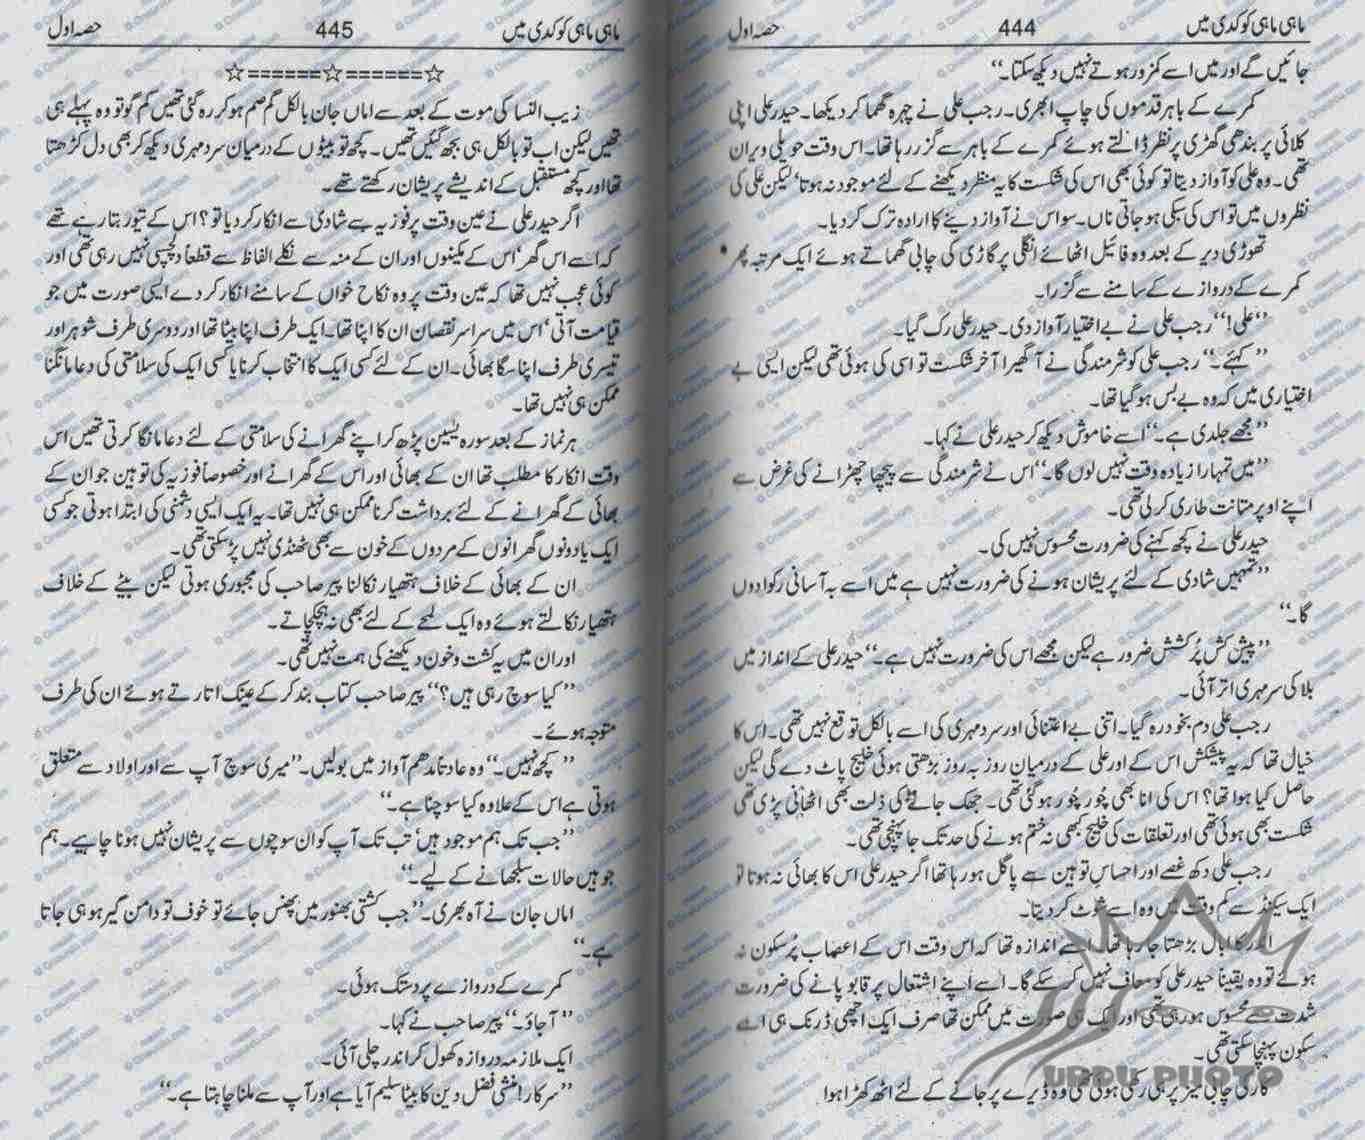 ماہی ماہی کوکدی میں 444 حصہ اول
جائیں گے اور میں اسے کمزور ہوتے نہیں دیکھ سکتا۔“
کمرے کے باہر قدموں کی چاپ ابھری۔ رجب علی نے چہرہ گھما کر دیکھا۔ حیدر علی اپنی
کلائی پر بندھی گھڑی پر نظر ڈالتے ہوئے کمرے کے باہر سے گزر رہا تھا۔ اس وقت حویلی ویران
تھی۔ وہ علی کو آواز دیتا تو کوئی بھی اس کی شکست کا یہ منظر دیکھنے کے لئے موجود نہ ہوتا‘ لیکن علی کی
نظروں میں تو اس کی سبکی ہو جاتی ناں۔ سو اس نے آواز دینے کا ارادہ ترک کر دیا۔
تھوڑی دیر کے بعد وہ فائیل اٹھائے انگلی پر گاڑی کی چابی گھماتے ہوئے ایک مرتبہ پھر
کمرے کے دروازے کے سامنے سے گزرا۔
”علی!“ رجب علی نے بے اختیار آواز دی۔ حیدر علی رک گیا۔
”کہئے۔“ رجب علی کو شرمندگی نے آ گھیرا آخر شکست تو اسی کی ہوئی تھی لیکن ایسی بے
اختیاری میں کہ وہ بے بس ہو گیا تھا۔
”مجھے جلدی ہے۔“ اسے خاموش دیکھ کر حیدر علی نے کہا۔
”میں تمہارا زیادہ وقت نہیں لوں گا۔“ اس نے شرمندگی سے پیچھا چھڑانے کی غرض سے
اپنے اوپر متانت طاری کر لی تھی۔
حیدر علی نے کچھ کہنے کی ضرورت محسوس نہیں کی۔
”تمہیں شادی کے لئے پریشان ہونے کی ضرورت نہیں ہے میں اسے بہ آسانی رکوا دوں
گا۔“
”پیش کش پُرکشش ضرور ہے لیکن مجھے اس کی ضرورت نہیں ہے۔“ حیدر علی کے انداز میں
بلا کی سرمہری اتر آئی۔
رجب علی دم بخود رہ گیا۔ اتنی بے اعتنائی اور سرد مہری کی اسے بالکل توقع نہیں تھی۔ اس کا
خیال تھا کہ یہ پیشکش اس کے اور علی کے درمیان روز بہ روز بڑھتی ہوئی خلیج پاٹ دے گی لیکن
حاصل کیا ہوا تھا؟ اس کی انا بھی چُور چُور ہو گئی تھی۔ جھک جانے کی ذلت بھی اٹھانی پڑی تھی
شکست بھی ہوئی تھی اور تعلقات کی خلیج کبھی نہ ختم ہونے کی حد تک جا پہنچی تھی۔
رجب علی دکھ غصے اور احساسِ توہین سے پاگل ہو رہا تھا اگر حیدر علی اس کا بھائی نہ ہوتا تو
ایک سیکنڈ سے کم وقت میں وہ اسے شوٹ کر دیتا۔
اندر کا ابال بڑھتا جا رہا تھا۔ اسے اندازہ تھا کہ اس وقت اس کے اعصاب پُرسکون نہ
ہوئے تو وہ یقیناً حیدر علی کو معاف نہیں کر سکے گا۔ اسے اپنے اشتعال پر قابو پانے کی ضرورت
شدت سے محسوس ہو رہی تھی اور ایک ہی صورت میں ممکن تھا صرف ایک اچھی ڈرنک ہی اسے
سکون پہنچا سکتی تھی۔
گاڑی چابی میز پر ہی رکھی ہوئی تھی وہ ڈیرے پر جانے کے لئے اٹھ کھڑا ہوا
URDU PHOTO
ماہی ماہی کوکدی میں 445 حصہ اول
☆======☆======☆
زیب النسا کی موت کے بعد سے اماں جان بالکل گم صم ہو کر رہ گئی تھیں کم گو تو وہ پہلے ہی
تھیں لیکن اب تو بالکل ہی بجھ گئیں تھیں۔ کچھ تو بیٹوں کے درمیان سرد مہری دیکھ کر بھی دل کڑھتا
تھا اور کچھ مستقبل کے اندیشے پریشان رکھتے تھے۔
اگر حیدر علی نے عین وقت پر فوزیہ سے شادی سے انکار کر دیا تو؟ اس کے تیور بتا رہے تھے
کہ اسے اس گھر‘ اس کے مکینوں اور ان کے منہ سے نکلے الفاظ سے قطعاً دلچسپی نہیں رہی تھی اور
کوئی عجب نہیں تھا کہ عین وقت پر وہ نکاح خواں کے سامنے انکار کر دے ایسی صورت میں جو
قیامت آتی‘ اس میں سراسر نقصان ان کا اپنا تھا۔ ایک طرف اپنا بیٹا تھا اور دوسری طرف شوہر اور
تیسری طرف اپنا سگا بھائی۔ ان کے لئے کسی ایک کا انتخاب کرنا یا کسی ایک کی سلامتی کی دعا مانگنا
ممکن ہی نہیں تھا۔
ہر نماز کے بعد سورہ یٰسین پڑھ کر اپنے گھرانے کی سلامتی کے لئے دعا مانگا کرتی تھیں اس
وقت انکار کا مطلب تھا ان کے بھائی اور اس کے گھرانے اور خصوصاً فوزیہ کی توہین جو ان کے
بھائی کے گھرانے کے لئے برداشت کرنا ممکن ہی نہیں تھا۔ یہ ایک ایسی دشمنی کی ابتدا ہوتی جو کسی
ایک یا دونوں گھرانوں کے مردوں کے خون سے بھی ٹھنڈی نہیں پڑ سکتی تھی۔
ان کے بھائی کے خلاف ہتھیار نکالنا پیر صاحب کی مجبوری ہوتی لیکن بیٹے کے خلاف
ہتھیار نکالتے ہوئے وہ ایک لمحے کے لئے بھی نہ ہچکچاتے۔
اور ان میں یہ کشت و خون دیکھنے کی ہمت نہیں تھی۔
”کیا سوچ رہی ہیں؟“ پیر صاحب کتاب بند کر کے عینک اتارتے ہوئے ان کی طرف
متوجہ ہوئے۔
”کچھ نہیں۔“ وہ عادتاً مدھم آواز میں بولیں۔ ”میری سوچ آپ سے اور اولاد سے متعلق
ہوتی ہے اس کے علاوہ کیا سوچنا ہے۔“
”جب تک ہم موجود ہیں‘ تب تک آپ کو ان سوچوں سے پریشان نہیں ہونا چاہیے۔ ہم
جو ہیں حالات سلجھانے کے لیے۔“
اماں جان نے آہ بھری۔ ”جب کشتی بھنور میں پھنس جائے تو خوف تو دامن گیر ہو ہی جاتا
ہے۔“
کمرے کے دروازے پر دستک ہوئی۔
”آ جاؤ۔“ پیر صاحب نے کہا۔
ایک ملازمہ دروازہ کھول کر اندر چلی آئی۔
”سرکار! منشی فضل دین کا بیٹا سلیم آیا ہے اور آپ سے ملنا چاہتا ہے۔“